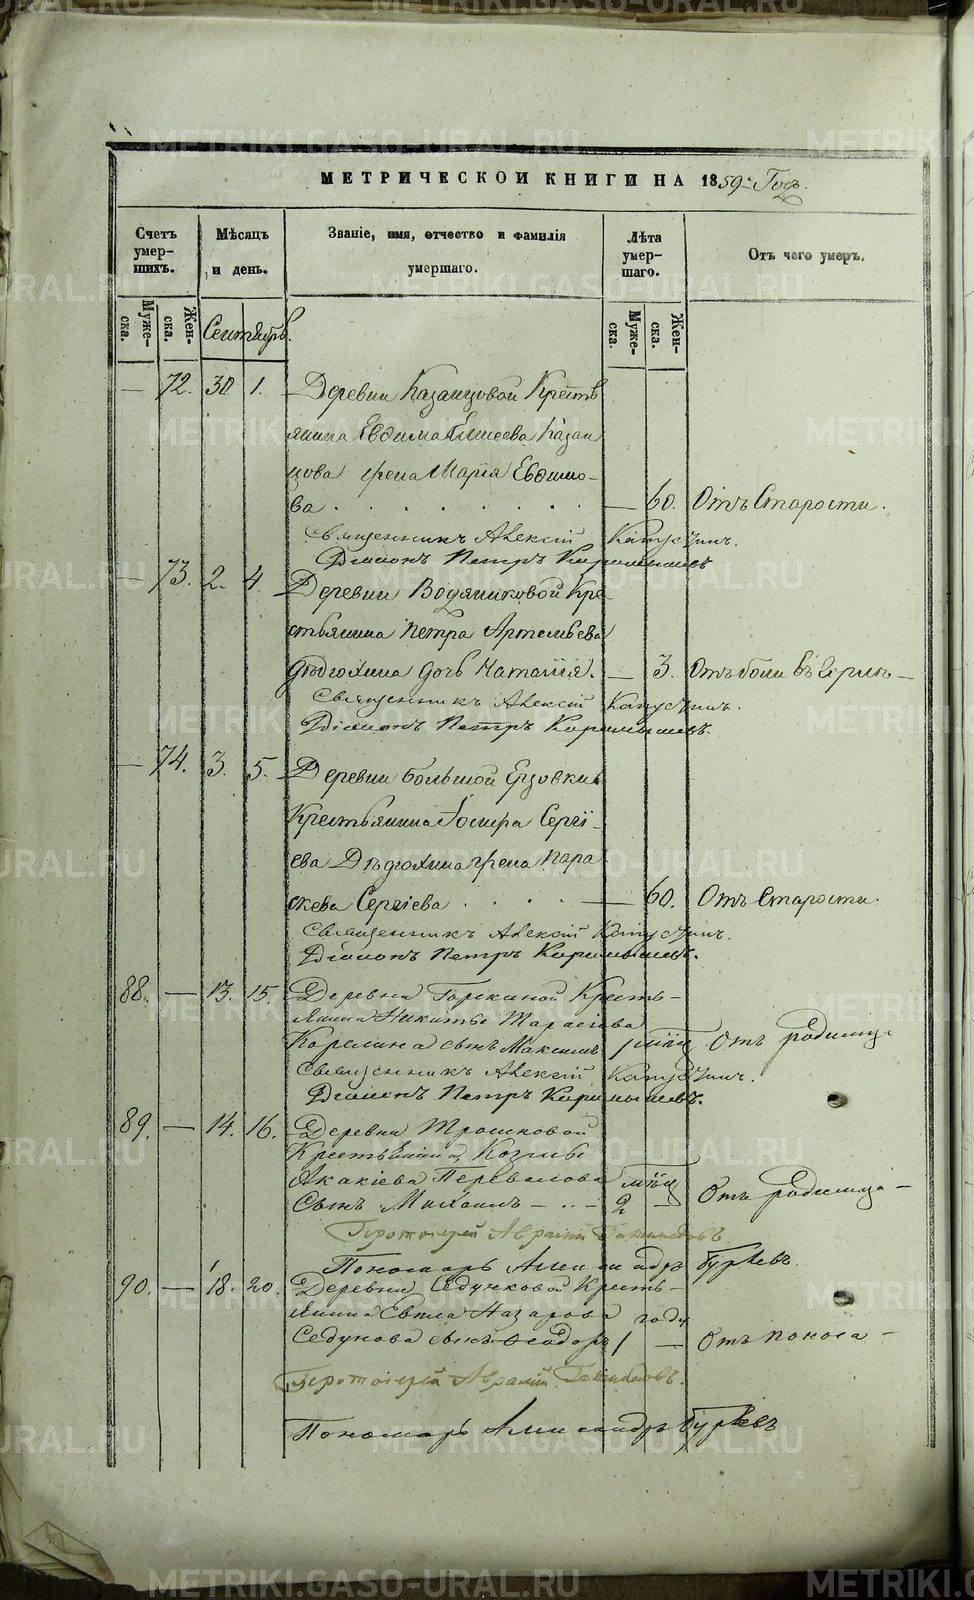 МЕТРИЧЕСКОЙ КНИГИ НА 1859й Годъ.
Счетъ умер-шихъ.
Мѣсяцъ и день.
Званіе, имя, отчество и фамилія умершаго.
Лѣта умер-шаго.
Отъ чего умеръ.
Муже-ска.
Жен-ска.
Сентябрь.
Муже-ска.
Жен-ска.
— 72. 30 1. Деревни Казанцовой Крестъ
янина Евдима Елисеева Казан
цова жена Марія Евдимо-
ва . . . . . . . . — 60. Отъ Старости.
Священникъ Алексій Капустинъ.
Діаконъ Петръ Карамышевъ
— 73. 2. 4. Деревни Водяниковой Кре-
стьянина Петра Артемьева
Дѣдюхина дочь Наталія. — 3. Отъ боли въ горлѣ —
Священникъ Алексій Капустинъ.
Діаконъ Петръ Карамышевъ.
— 74. 3. 5. Деревни Большой Ерзовки
Крестьянина Іосифа Сергі-
ева Дѣдюхина жена Пара
скева Сергіева . . . . — 60. Отъ Старости.
Священникъ Алексій Капустинъ.
Діаконъ Петръ Карамышевъ.
88. — 13. 15. Деревни Горскиной Кресть-
янина Никиты Тарасіева
Корелина сынъ Максимъ 1 мѣц Отъ родимца
Священникъ Алексій Капустинъ.
Діаконъ Петръ Карамышевъ.
89. — 14. 16. Деревни Трошковой
Крестьянина Козмы
Акакіева Перевалова мѣц
Сынъ Михаилъ — . . — 2 — Отъ родимца —
Протоіерей Авраамій
Пономарь Александръ Бурѣевъ.
90. — 18. 20. Деревни Седунковой Кресть-
янина Евпла Назарова годъ
Седунова сынъ Ѳеодоръ 1 — Отъ поноса —
Протоіерей Авраамій
Пономарь Александръ Бурѣевъ
METRIKI.GASO-URAL.RU